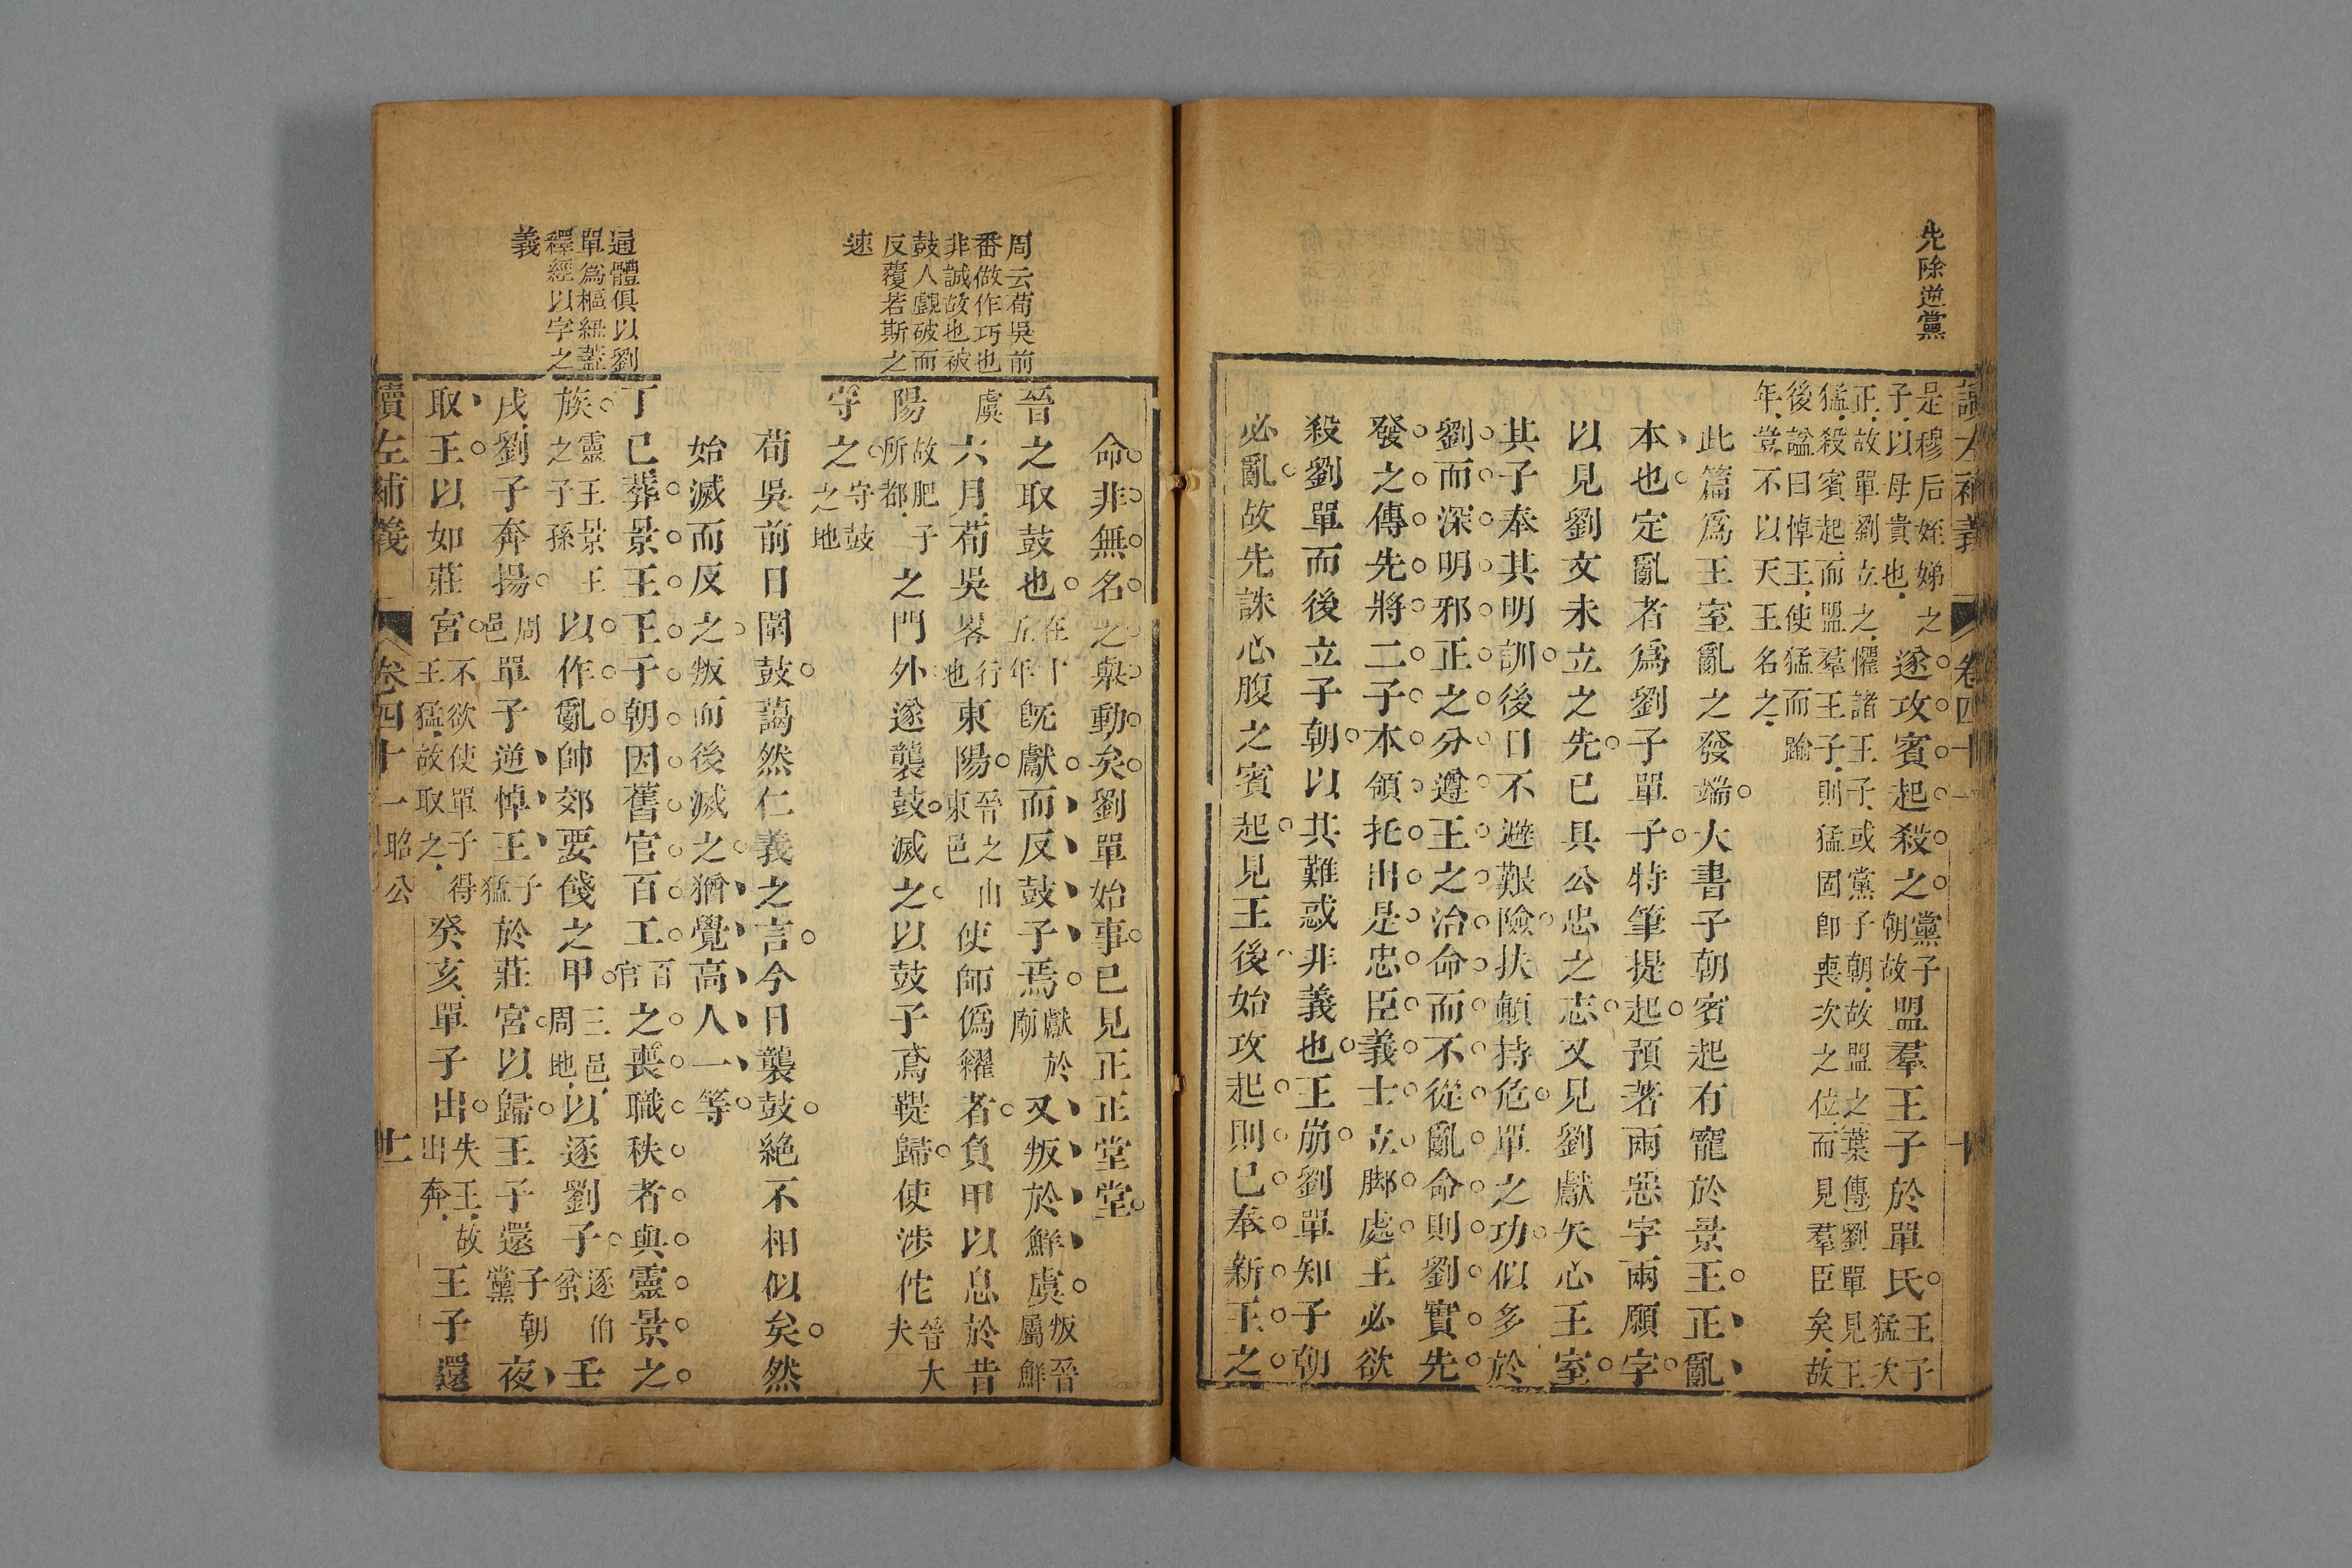 先除逆黨
讀左補義
卷四十一
十
是穆后姪娣之
子以母貴也
遂攻賓起殺之
黨子
朝故
盟羣王子於單氏
王子
猛次
正故單劉立之懼諸王子或黨子朝故盟之葉傳劉單見王
猛殺賓起而盟羣王子則猛固卽喪次之位而見羣臣矣故
後謚曰悼王使猛而踰
年豈不以天王名之
此篇爲王室亂之發端大書子朝賓起有寵於景王正亂
本也定亂者爲劉子單子特筆提起預著兩惡字兩願字
以見劉文未立之先已具公忠之志又見劉獻矢心王室
其子奉其明訓後日不避艱險扶顛持危單之功似多於
劉而深明邪正之分遵王之治命而不從亂命則劉實先
發之傳先將二子本領托出是忠臣義士立脚處王必欲
殺劉單而後立子朝以其難惑非義也王崩劉單知子朝
必亂故先誅心腹之賓起見王後始攻起則已奉新王之
周云荀吳前
番做作巧也
非誠故也被
鼓人戲破而
反覆若斯之
速
通體俱以劉
單爲樞紐蓋
釋經以字之
義
命非無名之舉動矣劉單始事已見正正堂堂
晉之取鼓也
在十
五年
旣獻而反鼓子焉
獻於
廟
又叛於鮮虞
叛晉
屬鮮
虞
六月荀吳畧
行
也
東陽
晉之山
東邑
使師僞糴者負甲以息於昔
陽
故肥子
所都
之門外遂襲鼓滅之以鼓子鳶鞮歸使涉佗
晉大
夫
守之
守鼓
之地
荀吳前日圍鼓藹然仁義之言今日襲鼓絕不相似矣然
始滅而反之叛而後滅之猶覺高人一等
丁巳葬景王王子朝因舊官百工
百
官
之喪職秩者與靈景之
族
靈王景王
之子孫
以作亂帥郊要餞之甲
三邑
周地
以逐劉子
逐伯
蚠
壬
戌劉子奔揚
周
邑
單子逆悼王
子
猛
於莊宮以歸王子還
子朝
黨
夜
取王以如莊宮
不欲使單子得
王猛故取之
癸亥單子出
失王故
出奔
王子還
讀左補義
卷四十一
昭公
十一